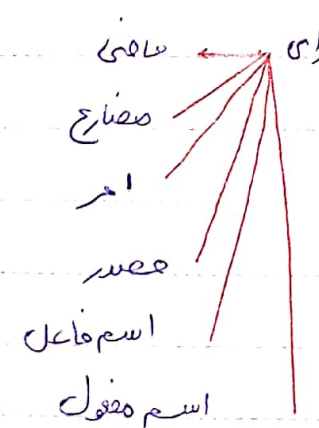 ماضی
مضارع
امر
مصدر
اسم فاعل
اسم مفعول